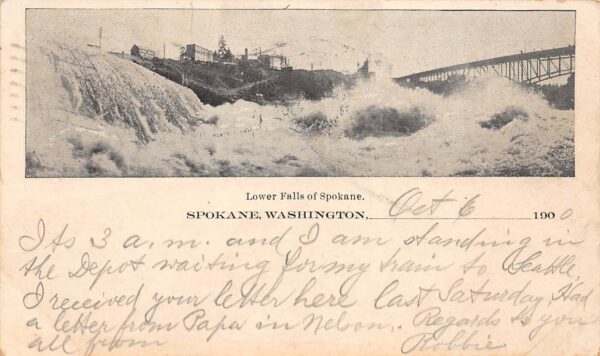 Lower Falls of Spokane.
SPOKANE, WASHINGTON, Oct 6 1900
Its 3 a.m. and I am standing in
the Depot waiting for my train to Seattle,
I received your letter here last Saturday, Had
a letter from Papa in Nelson. Regards to you
all from Robbie